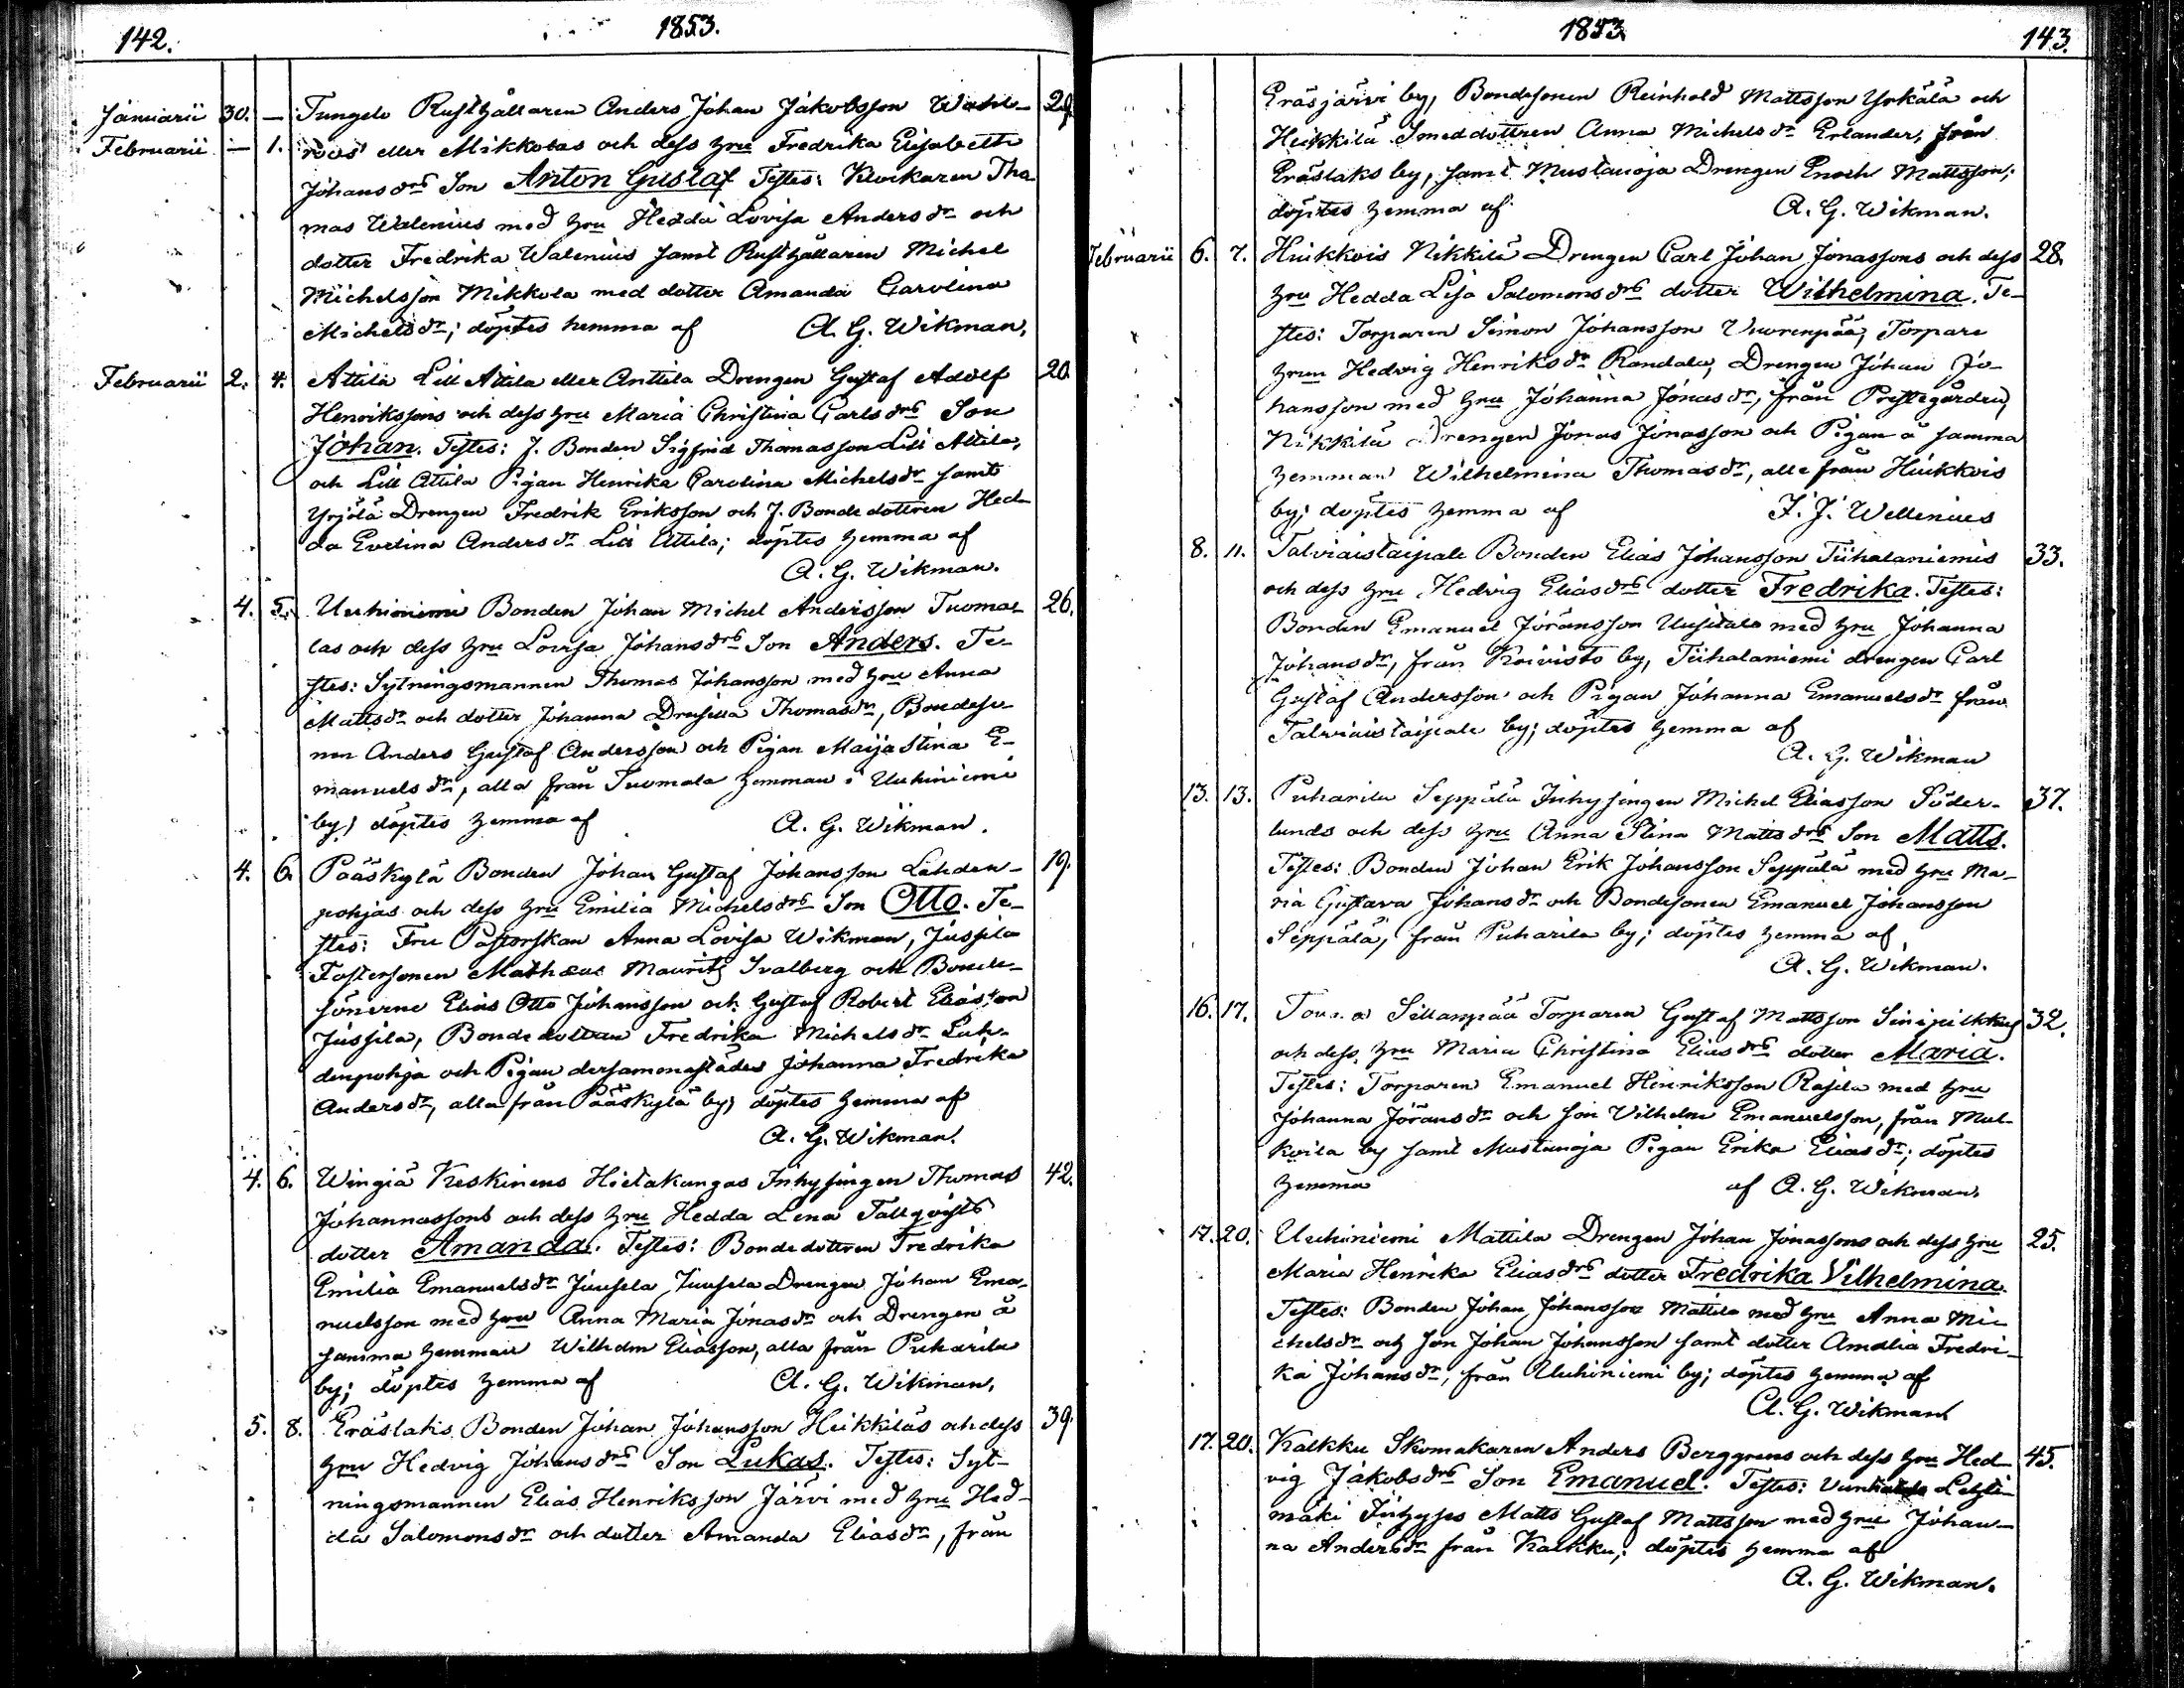 142. 1853.
Januarii 30. — Tungelo Rusthållaren Anders Johan Jakobsson Wahl- 29.
Februarii — 1. roos eller Mikkolas och dess hru Fredrika Elisabeth
Johansdrs Son Anton Gustaf Testes: Klockaren Tho-
mas Walenius med hru Hedda Lovisa Andersdr och
dotter Fredrika Walenius samt Rusthållaren Michel
Michelsson Mikkola med dotter Amanda Carolina
Michelsdr; döptes hemma af A. G. Wikman.
Februarii 2. 4. Attila Lill Attila eller Anttila Drengen Gustaf Adolf 20.
Henrikssons och dess hru Maria Christina Carlsdrs Son
Johan. Testes: f. Bonden Sigfrid Thomasson Lill Attila,
och Lill Attila Pigan Henrika Carolina Michelsdr samt
Yrjölä Drengen Fredrik Eriksson och f. Bondedottren Hed-
da Evelina Andersdr Lill Attila; döptes hemma af
A. G. Wikman.
4. 5. Uuhiniemi Bonden Johan Michel Andersson Tuoma- 26.
las och dess hru Lovisa Johansdrs Son Anders. Te-
stes: Sytningsmannen Thomas Johansson med hru Anna
Mattsdr och dotter Johanna Drusilla Thomasdr, Bondeso-
nen Anders Gustaf Andersson och Pigan Maija Stina E-
manuelsdr, alla från Tuomala hemman i Uuhiniemi
by; döptes hemma af A. G. Wikman.
4. 6. Pääskylä Bonden Johan Gustaf Johansson Lahden- 19.
pohjas och dess hru Emilia Michelsdrs Son Otto. Te-
stes: Fru Pastorskan Anna Lovisa Wikman, Jussila
Fostersonen Mathæus Mauritz Svalberg och Bonde-
sönerne Elias Otto Johansson och Gustaf Robert Eliasson
Jussila, Bondedottren Fredrika Michelsdr Lah-
denpohja och Pigan dersammastädes Johanna Fredrika
Andersdr, alla från Pääskylä by; döptes hemma af
A. G. Wikman.
4. 6. Wingiä Keskinens Hietakangas Inhysingen Thomas 42.
Johannassons och dess hru Hedda Lena Tallqvists
dotter Amanda. Testes: Bondedottren Fredrika
Emilia Emanuelsdr Juusela, Juusela Drengen Johan Ema-
nuelsson med hru Anna Maria Jonasdr och Drengen å
samma hemman Wilhelm Eliasson, alla från Puharila
by; döptes hemma af A. G. Wikman.
5. 8. Eräslaks Bonden Johan Johansson Heikkiläs och dess 39.
hru Hedvig Johansdrs Son Lukas. Testes: Syt-
ningsmannen Elias Henriksson Järvi med hru Hed-
da Salomonsdr och dotter Amanda Eliasdr, från
1853. 143.
Eräsjärvi by, Bondesonen Reinhold Mattsson Yrkälä och
Heikkilä Smeddottren Anna Michelsdr Erlander, från
Eräslaks by, samt Mustanoja Drengen Enoch Mattsson;
döptes hemma af A. G. Wikman.
Februarii 6. 7. Huikkois Nikkilä Drengen Carl Johan Jonassons och dess 28.
hru Hedda Lisa Salomonsdrs dotter Wilhelmina. Te-
stes: Torparen Simon Johansson Vuorenpää, Torpare
hrun Hedvig Henriksdr Randala, Drengen Johan Jo-
hansson med hru Johanna Jonasdr, från Prestegården,
Nikkilä Drengen Jonas Jonasson och Pigan å samma
hemman Wilhelmina Thomasdr, alle från Huikkois
by; döptes hemma af F. J. Wellenius
8. 11. Talviaistaipale Bonden Elias Johansson Tiihalaniemis 33.
och dess hru Hedvig Eliasdrs dotter Fredrika. Testes:
Bonden Emanuel Jöransson Uusitalo med hru Johanna
Johansdr, från Koivisto by, Tiihalaniemi drengen Carl
Gustaf Andersson och Pigan Johanna Emanuelsdr från
Talviaistaipale by; döptes hemma af
A. G. Wikman
13. 13. Puharila Seppälä Inhysingen Michel Eliasson Söder- 37.
lunds och dess hru Anna Stina Mattsdrs Son Matts.
Testes: Bonden Johan Erik Johansson Seppälä med hru Ma-
ria Gustava Johansdr och Bondesonen Emanuel Johansson
Seppälä, från Puharila by; döptes hemma af
A. G. Wikman.
16. 17. Sillanpää Torparen Gustaf Mattsson Sinipilkkas 32.
och dess hru Maria Christina Eliasdrs dotter Maria.
Testes: Torparen Emanuel Henriksson Rajala med hru
Johanna Jöransdr och son Vilhelm Emanuelsson, från Mul-
koila by samt Mustanoja Pigan Erika Eliasdr; döptes
hemma af A. G. Wikman.
17. 20. Uuhiniemi Mattila Drengen Johan Jonassons och dess hru 25.
Maria Henrika Eliasdrs dotter Fredrika Vilhelmina.
Testes: Bonden Johan Johansson Mattila med hru Anna Mi-
chelsdr och son Johan Johansson samt dotter Amalia Fredri-
ka Johansdr, från Uuhiniemi by; döptes hemma af
A. G. Wikman
17. 20. Kalkku Skomakaren Anders Berggrens och dess hru Hed- 45.
vig Jakobsdrs Son Emanuel. Testes: Lehti-
mäki Inhyses Matts Gustaf Mattsson med hru Johan-
na Andersdr från Kalkku; döptes hemma af
A. G. Wikman.